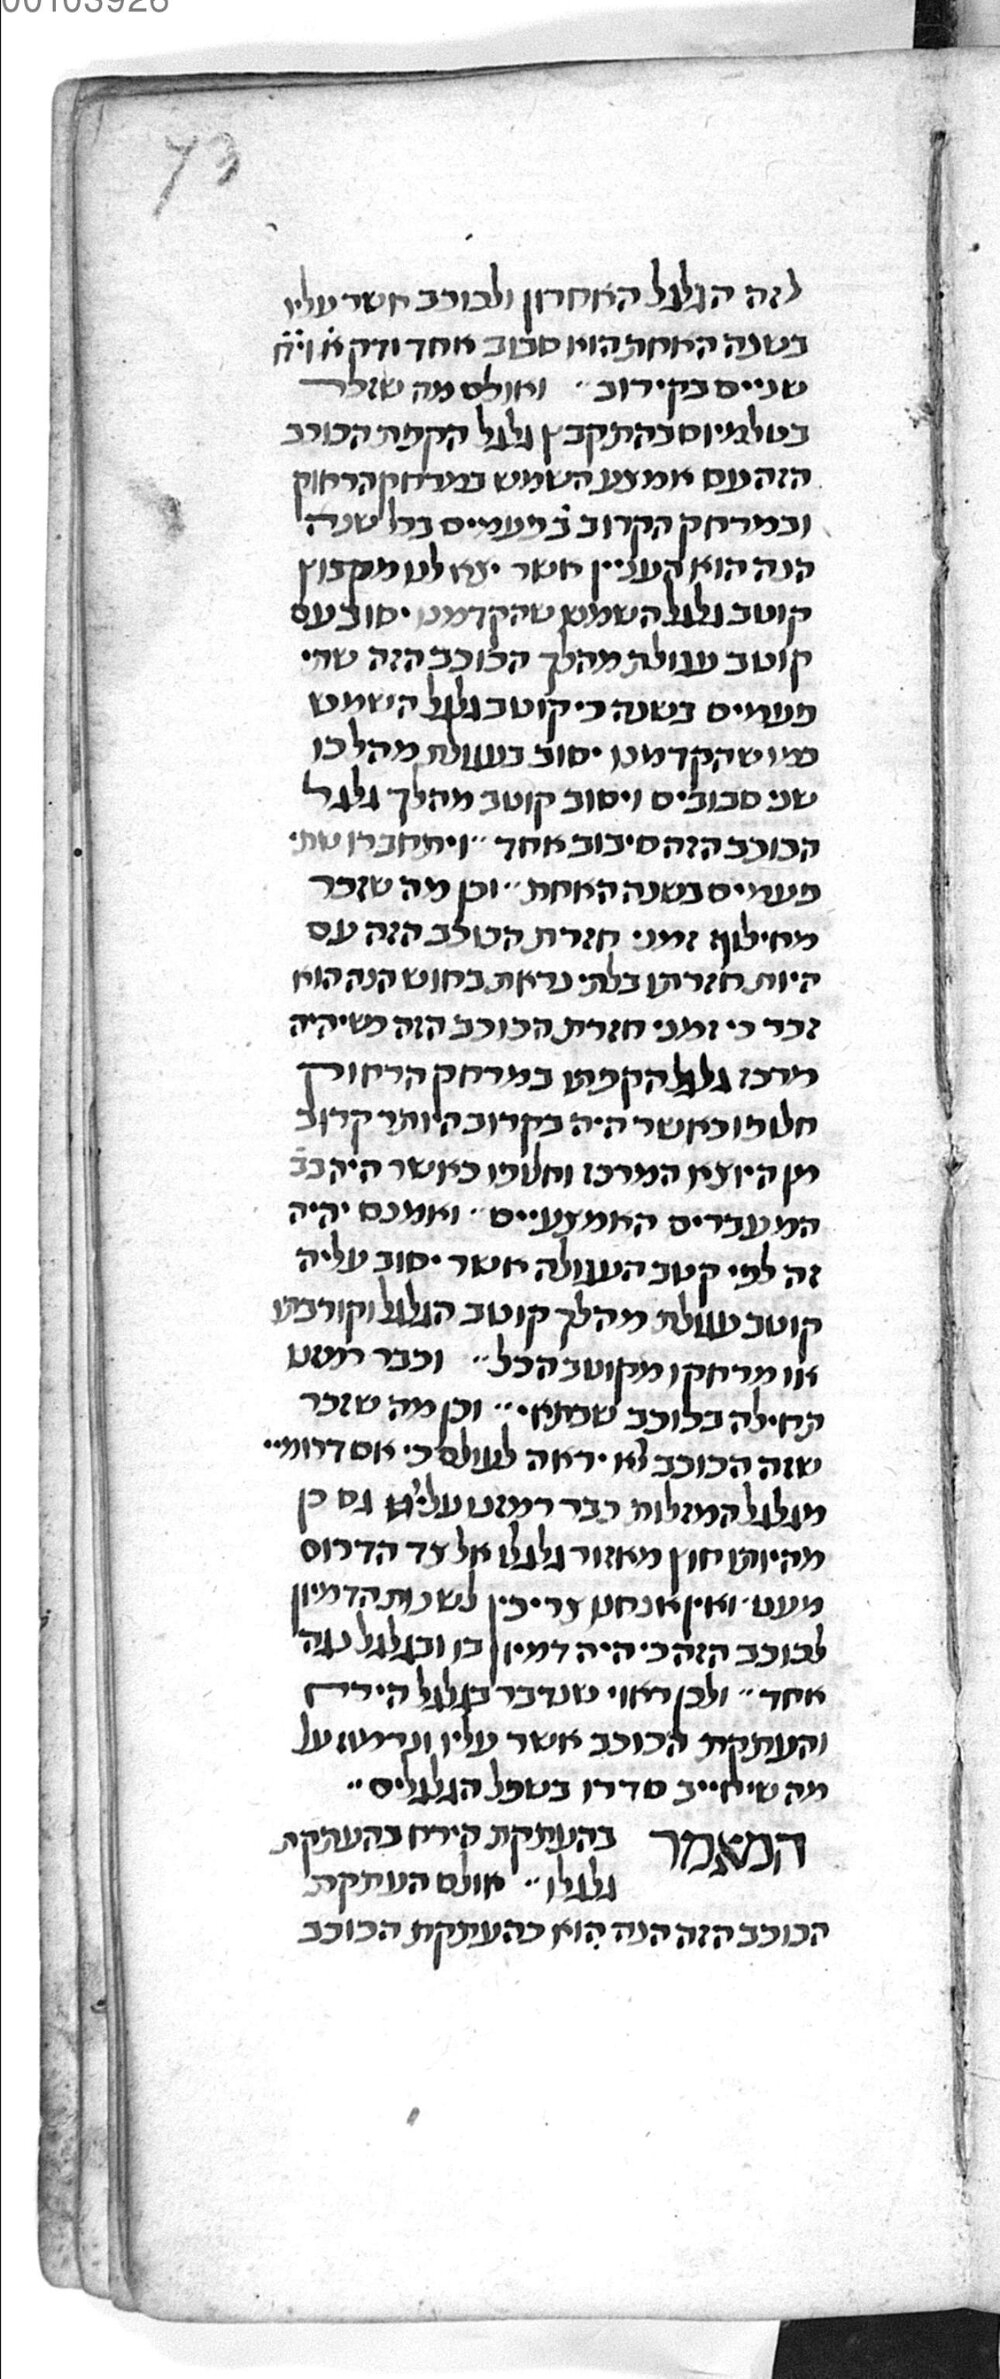 00103926
73
לזה הגלגל האחרון ולכוכב אשר עליו
בשנה האחת הוא סבוב אחד ודק א וי״ח
שניים בקירוב ״ ואולם מה שזכר
בטלמיוס בהתקבץ גלגל הקפת הכוכב
הזה עם אמצע השמש במרחק הראוק
ובמרחק הקרוב ב׳ פעמיים בכל שנה
הנה הוא העניין אשר יצא לנו מקבוץ
קוטב גלגל השמש שהקדמנו יסוב עם
קוטב עגולת מהלך הכוכב הזה שתי
פעמים בשנה כי קוטב גלגל השמש
כמו שהקדמנו יסוב בעגולת מהלכו
שני סבובים ויסוב קוטב מהלך גלגל
הכוכב הזה סיבוב אחד ״ ויתחברו שתי
פעמים בשנה האחת ״ וכן מה שזכר
מחילוף זמני חזרת הכוכב הזה עם
היות חזרתו בלתי נראת בחוש הנה הוא
זכר כי זמני חזרת הכוכב הזה כשיהיה
מרכז גלגל הקפתו במרחק הרחוק
חלופו כאשר היה בקרוב היותר קרוב
מן היוצא המרכז וחלופו כאשר היה בב׳
המעברים האמצעיים ״ ואמנם יהיה
זה לפי קטב העגולה אשר יסוב עליה
קוטב עגולת מהלך קוטב הגלגל וקורבתו
או מרחקו מקוטב הכל ״ וכבר רמזנו
תחילה בכוכב שבתאי ״ וכן מה שזכר
שזה הכוכב לא יראה לעולם כי אם דרומיי
מגלגל המזלות כבר רמזנו עליו גם כן
מהיותו חוץ מאזור גלגלו אל צד הדרום
מעט ׳ ואין אנחנו צריכין לשנות הדמיון
לכוכב הזה כי היה דמיון בו ובגלגל נגה
אחד ״ ולכן ראוי שנדבר בגלגל הירח
והעתקת הכוכב אשר עליו ונרמוז על
מה שיחייב סדרו בשפל הגלגלים ״
המאמר בהעתקת הירח בהעתקת
גלגלו ״ אולם העתקת
הכוכב הזה הנה הוא כהעתקת הכוכב